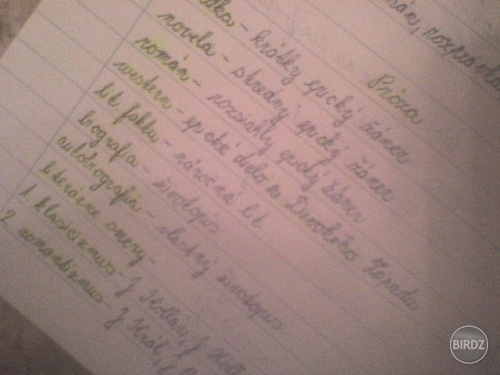 Próza
- krátky epický žáner
novela - stredný epický žáner
román - rozsiahly epický žáner
western - epické dielo z Divokého Západu
lit. faktu - náročná lit.
biografia - životopis
autobiografia - vlastný životopis
literárne smery -
1. klasicizmus - J. Hollý, J.
2. romantizmus - J. Kráľ,
BIRDZ